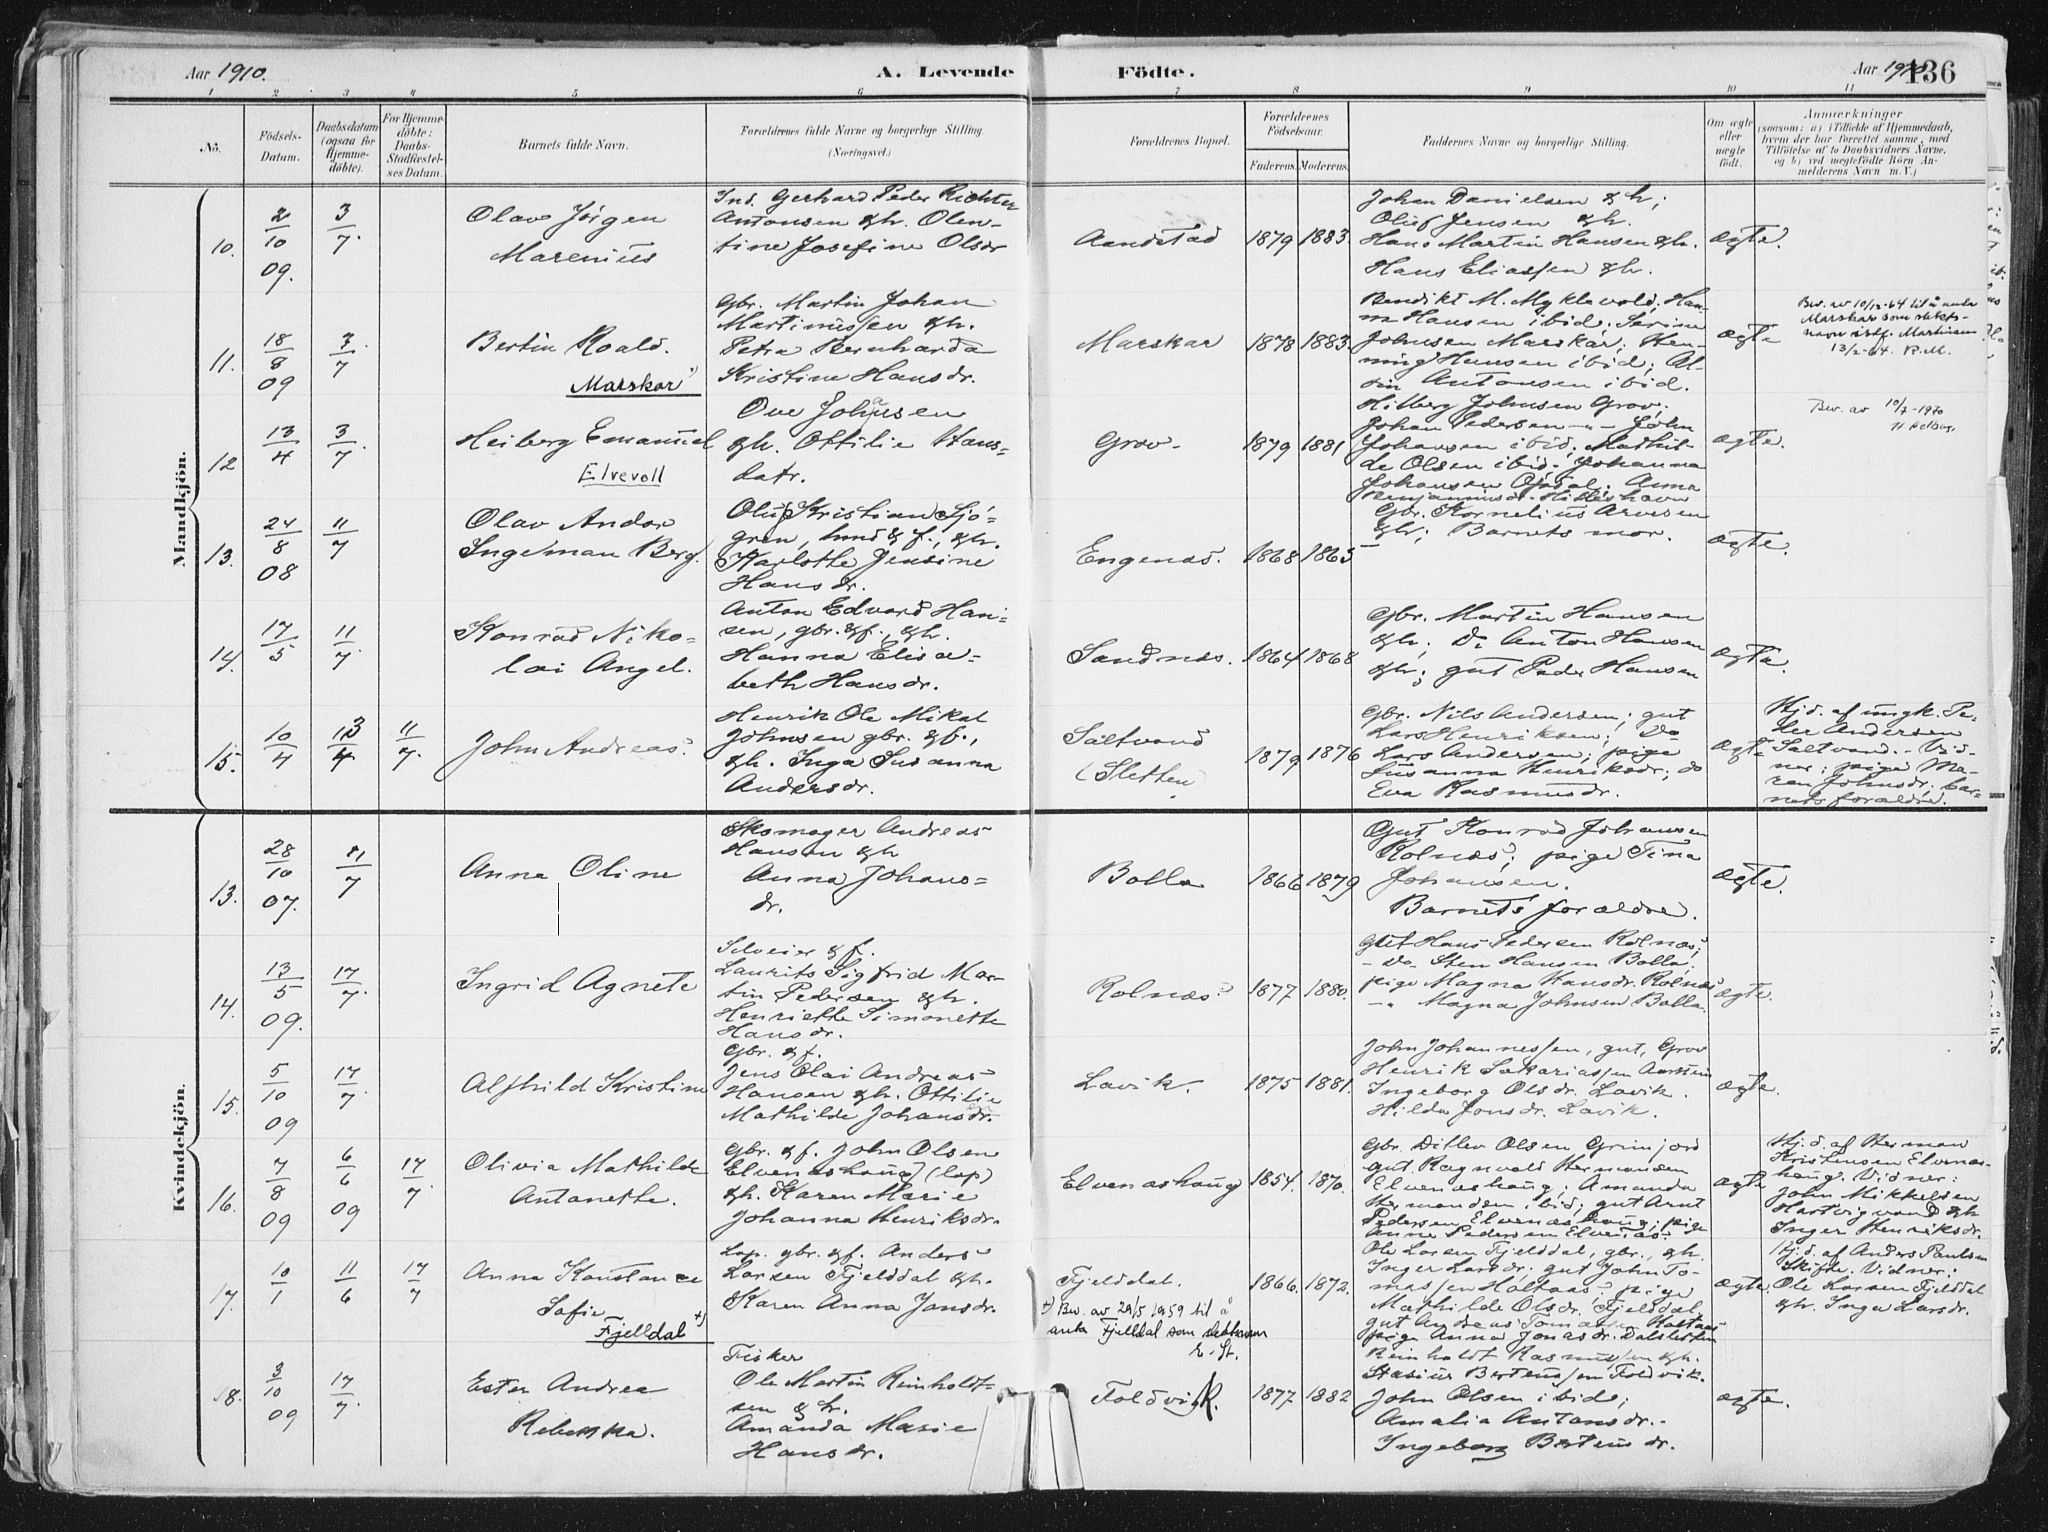 Aar 1910.
A. Levende Födte.
Aar 1910.
136
1 2 3 4 5 6 7 8 9 10 11
No.
Födsels-
Datum.
Daabsdatum
(ogsaa for
Hjemme-
döbte).
For Hjemme-
döbte:
Daabs-
Stadfæstel-
ses Datum.
Barnets fulde Navn.
Forældrenes fulde Navne og borgerlige Stilling.
(Næringsvei.)
Forældrenes Bopæl.
Forældrenes
Födselsaar.
Faderens.
Moderens.
Faddernes Navne og borgerlige Stilling.
Om ægte
eller
uægte
födt.
Anmærkninger
(saasom: a) i Tilfælde af Hjemmedaab,
hvem der har forrettet samme, med
Tilföielse af to Daabsvidners Navne,
og b) ved uægtefödte Börn An-
melderens Navn m. V.)
Mandkjön.
10.
2/10 09.
3/7.
Olav Jörgen
Marenius
Ins. Gerhard Peder Richter
Antonsen & h. Olen-
tine Josefine Olsdr
Aandstad
1879
1883.
Johan Danielsen & h;
Oluf Jensen & h.
Hans Martin Hansen & h.
Hans Eliassen & h.
ægte.
11.
18/8 09
3/7
Bertin Roald.
Marskar
Gbr. Martin Johan
Martinussen & h.
Petra Bernharda
Kristine Hansdr.
Marskar
1878
1883.
Bendikt M. Myklevold; Han-
na Hansen ibid; Serine
Johnsen Marskar; Hen-
ning Hansen ibid; Al-
Antonsen ibid.
ægte
Bev. av 10/12-64 til å anta
Marskar som slekts-
navn istf. Martinsen
13/2-64. R.M.
12
13/4
3/7.
Heiberg Emanuel
Elvevoll
Ove Johansen
& h. Ottilie Hans-
datr.
Grov-
1879
1881
Hilberg Johnsen Grov;
Johan Pedersen -"- John
Johansen ibid; Mathil-
de Olsen ibid. Johanna
Johansen; Anna
Benjaminsdr. Hilleshavn
ægte.
Bev. av 10/7-1970
13.
24/8 08
11/7
Olav Andor
Ingelman Berg.
Oluf Kristian Sjö-
gren, & f., & h.
Karlotte Jensine
Hansdr.
Engenæs.
1868
1865
Gbr. Kornelius Arnesen
& h; Barnets mor.
ægte.
14.
17/5
11/7.
Konrad Niko-
lai Angel.
Anton Edvard Han-
sen, gbr. & f., & h.
Hanna Elisa-
beth Hansdr.
Sandnæs.
1864
1868
Gbr. Martin Hansen
& h; Do Anton Hansen
& h; gut Peder Hansen
ægte.
15.
10/4
13/4
11/7.
John Andreas.
Henrik Ole Mikal
Johnsen gbr. & f.,
& h. Inga Susanna
Andersdr.
Saltvand
(Sletten)
1879
1876
Gbr. Nils Andersen; gut
Lars Henriksen; Do
Lars Andersen; pige
Susanna Henriksdr; do
Eva Rasmusdr.
ægte
Hj.d. af ungk. Pe-
der Andersen
Saltvand. - Vid-
ner: pige Ma-
ren Johnsdr; bar-
nets forældre.
Kvindekjön.
13.
28/10 07.
11/7
Anna Oline
Skomager Andreas
Hansen & h
Anna Johans-
dr.
Bolla
1866
1879
Gut Konrad Johansen
Rolnæs; pige Tina
Johansen.
Barnets forældre.
ægte.
14.
13/5 09.
17/7.
Ingrid Agnete
Selveier & f.
Laurits Sigfrid Mar-
tin Pedersen & h.
Henriette Simonette
Hansdr.
Rolnæs.
1877
1880.
Gut Hans Pedersen Rolnæs;
- Do - Sten Hansen Bolla;
pige Magna Hansdr. Rolnæs
-"- Magna Johnsen Bolla
ægte.
15.
5/10 09
17/7.
Alfhild Kristine
Gbr. & f.
Jens Olai Andreas
Hansen & h. Ottilie
Mathilde Johansdr.
Lavik.
1875
1881.
John Johannessen, gut, Grov
Henrik Sakariassen
Ingeborg Olsdr. Lavik.
Hilda Jonsdr. Lavik.
ægte.
16.
7/8 09
6/6 09
17/7.
Olivia Mathilde
Antonette.
Gbr. & f. John Olsen
Elvenæshaug (lap)
& h. Karen Marie
Johanna Henriksdr.
Elvenæshaug
1854.
1870.
Gbr. Ditlev Olsen Grinjord
gut Ragnvald Hermansen
Elvenæshaug; Amanda
Hermansen ibid; gut Arnt
Pedersen Elvenæshaug; pige
Anne Pedersen Elvenæs.
ægte
Hj.d. af Herman
Kristensen Elvenæs-
haug. Vidner:
John Mikkelsen
Hartvigvand & h
Inger Henriksdr.
17.
10/1
11/6
17/7
Anna Konstance
Sofie
Fjelldal +)
Lap. gbr. & f. Anders
Larsen Fjelddal & h.
Karen Anna Jonsdr.
Fjelddal.
+) Bev. av 29/5 1959 til å
anta Fjelldal som slektsnavn
E. St.
1866.
1872.
Ole Larsen Fjelddal, gbr., & h.
Inger Larsdr; gut John To-
massen Holtaas; pige
Mathilde Olsdr. Fjelddal,
gut Andreas Tomassen Holtaas
pige Anna Jonasdr. Dalsletten
ægte.
Hj.d. af Anders Paulsen
Skifte. Vidner:
Ole Larsen Fjelddal
& h. Inger Larsdr.
18.
3/10 09
17/7.
Ester Andrea
Rebekka.
Fisker
Ole Martin Reinholdt-
sen & h.
Amanda Marie
Hansdr.
Foldvik.
1877
1882
Reinholdt Rasmussen & h.
Stasius Berteussen Foldvik.
John Olsen ibid;
Amalia Antonsdr.
Ingeborg Berteusdr.
ægte.